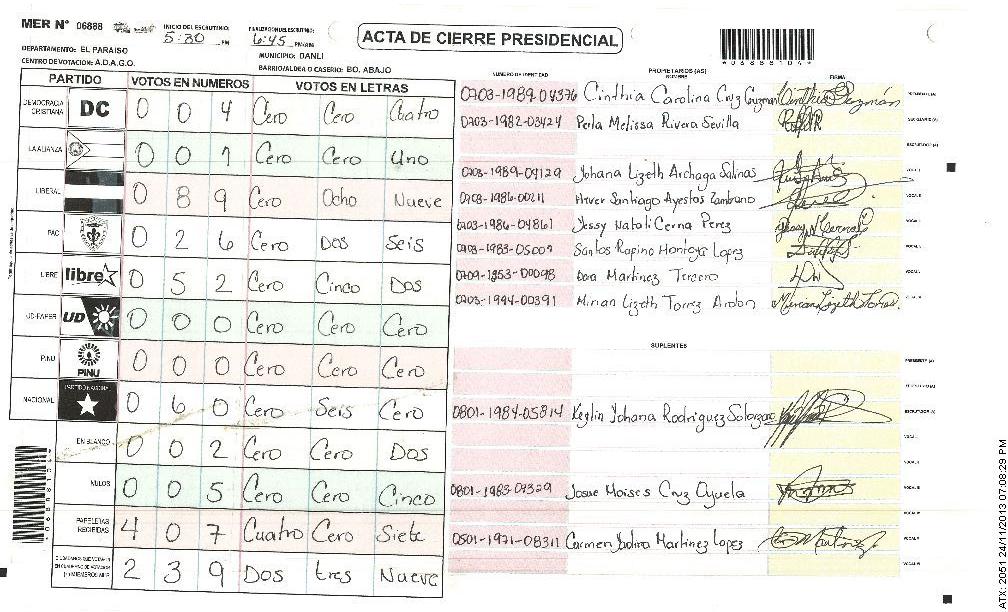 MER N° 06888
INICIO DEL ESCRUTINIO:
5:30 PM
FINALIZACION DEL ESCRUTINIO:
6:45 PM/AM
ACTA DE CIERRE PRESIDENCIAL
DEPARTAMENTO: EL PARAISO
MUNICIPIO: DANLI
CENTRO DE VOTACION: A.D.A.G.O.
BARRIO/ALDEA O CASERIO: BO. ABAJO
PARTIDO VOTOS EN NUMEROS VOTOS EN LETRAS
DEMOCRACIA CRISTIANA DC 0 0 4 Cero Cero Cuatro
LA ALIANZA 0 0 1 Cero Cero Uno
LIBERAL 0 8 9 Cero Ocho Nueve
PAC 0 2 6 Cero Dos Seis
LIBRE libre 0 5 2 Cero Cinco Dos
UD-FAPER UD 0 0 0 Cero Cero Cero
PINU PINU 0 0 0 Cero Cero Cero
NACIONAL PARTIDO NACIONAL 0 6 0 Cero Seis Cero
EN BLANCO 0 0 2 Cero Cero Dos
NULOS 0 0 5 Cero Cero Cinco
PAPELETAS RECIBIDAS 4 0 7 Cuatro Cero Siete
2 3 9 Dos tres Nueve
NUMERO DE IDENTIDAD PROPIETARIOS (AS) FIRMA
0703-1989-04376 Cinthia Carolina Cruz Guzman
0703-1982-03424 Perla Melissa Rivera Sevilla
0703-1989-04129 Johana Lizeth Archaga Salinas
0703-1986-00211 Hever Santiago Ayestas Zambrano
0703-1986-04861 Jessy Natali Cerna Perez
0703-1983-05009 Santos Ropino Montoya Lopez
0709-1953-00098 Dora Martinez Tercero
0703-1994-00391 Mirian Lizeth Torrez
SUPLENTES
0801-1984-05814 Keylin Yohana Rodriguez Solorzano
0801-1983-04329 Josue Moises Cruz Oyuela
0501-1971-08311 Carmen Martinez Lopez
*06888104*
ATX: 2051 24/11/2013 07:08:29 PM